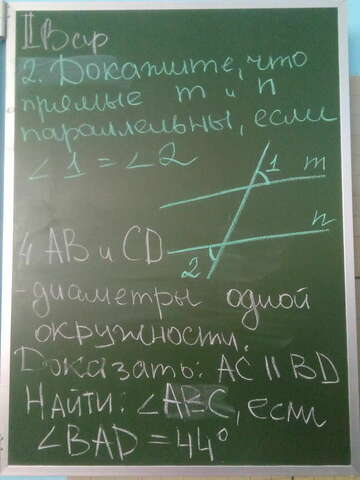 II Вар
2. Докажите, что
прямые m и n
параллельны, если
∠1 = ∠2
1 m
n
2
4 AB и CD
-диаметры одной
окружности.
Доказать: AC || BD
Найти: ∠ABC, если
∠BAD = 44°